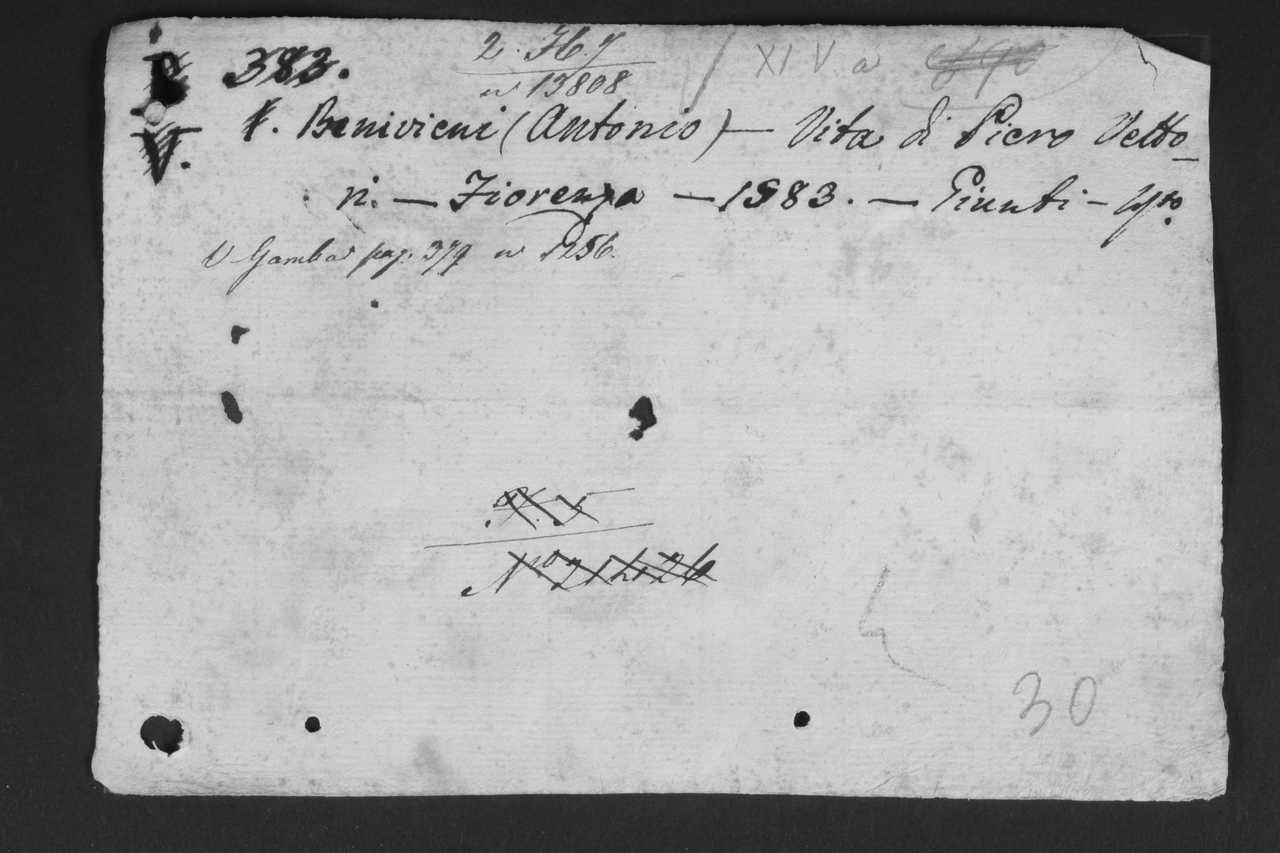 383.
2. H. 7
nº 13808
XI V. a
V.
Benivieni (Antonio) — Vita di Piero Vetto-
ri. — Fiorenza — 1583. — Giunti — 4to.
V Gamba pag. 379 nº 1256.
30